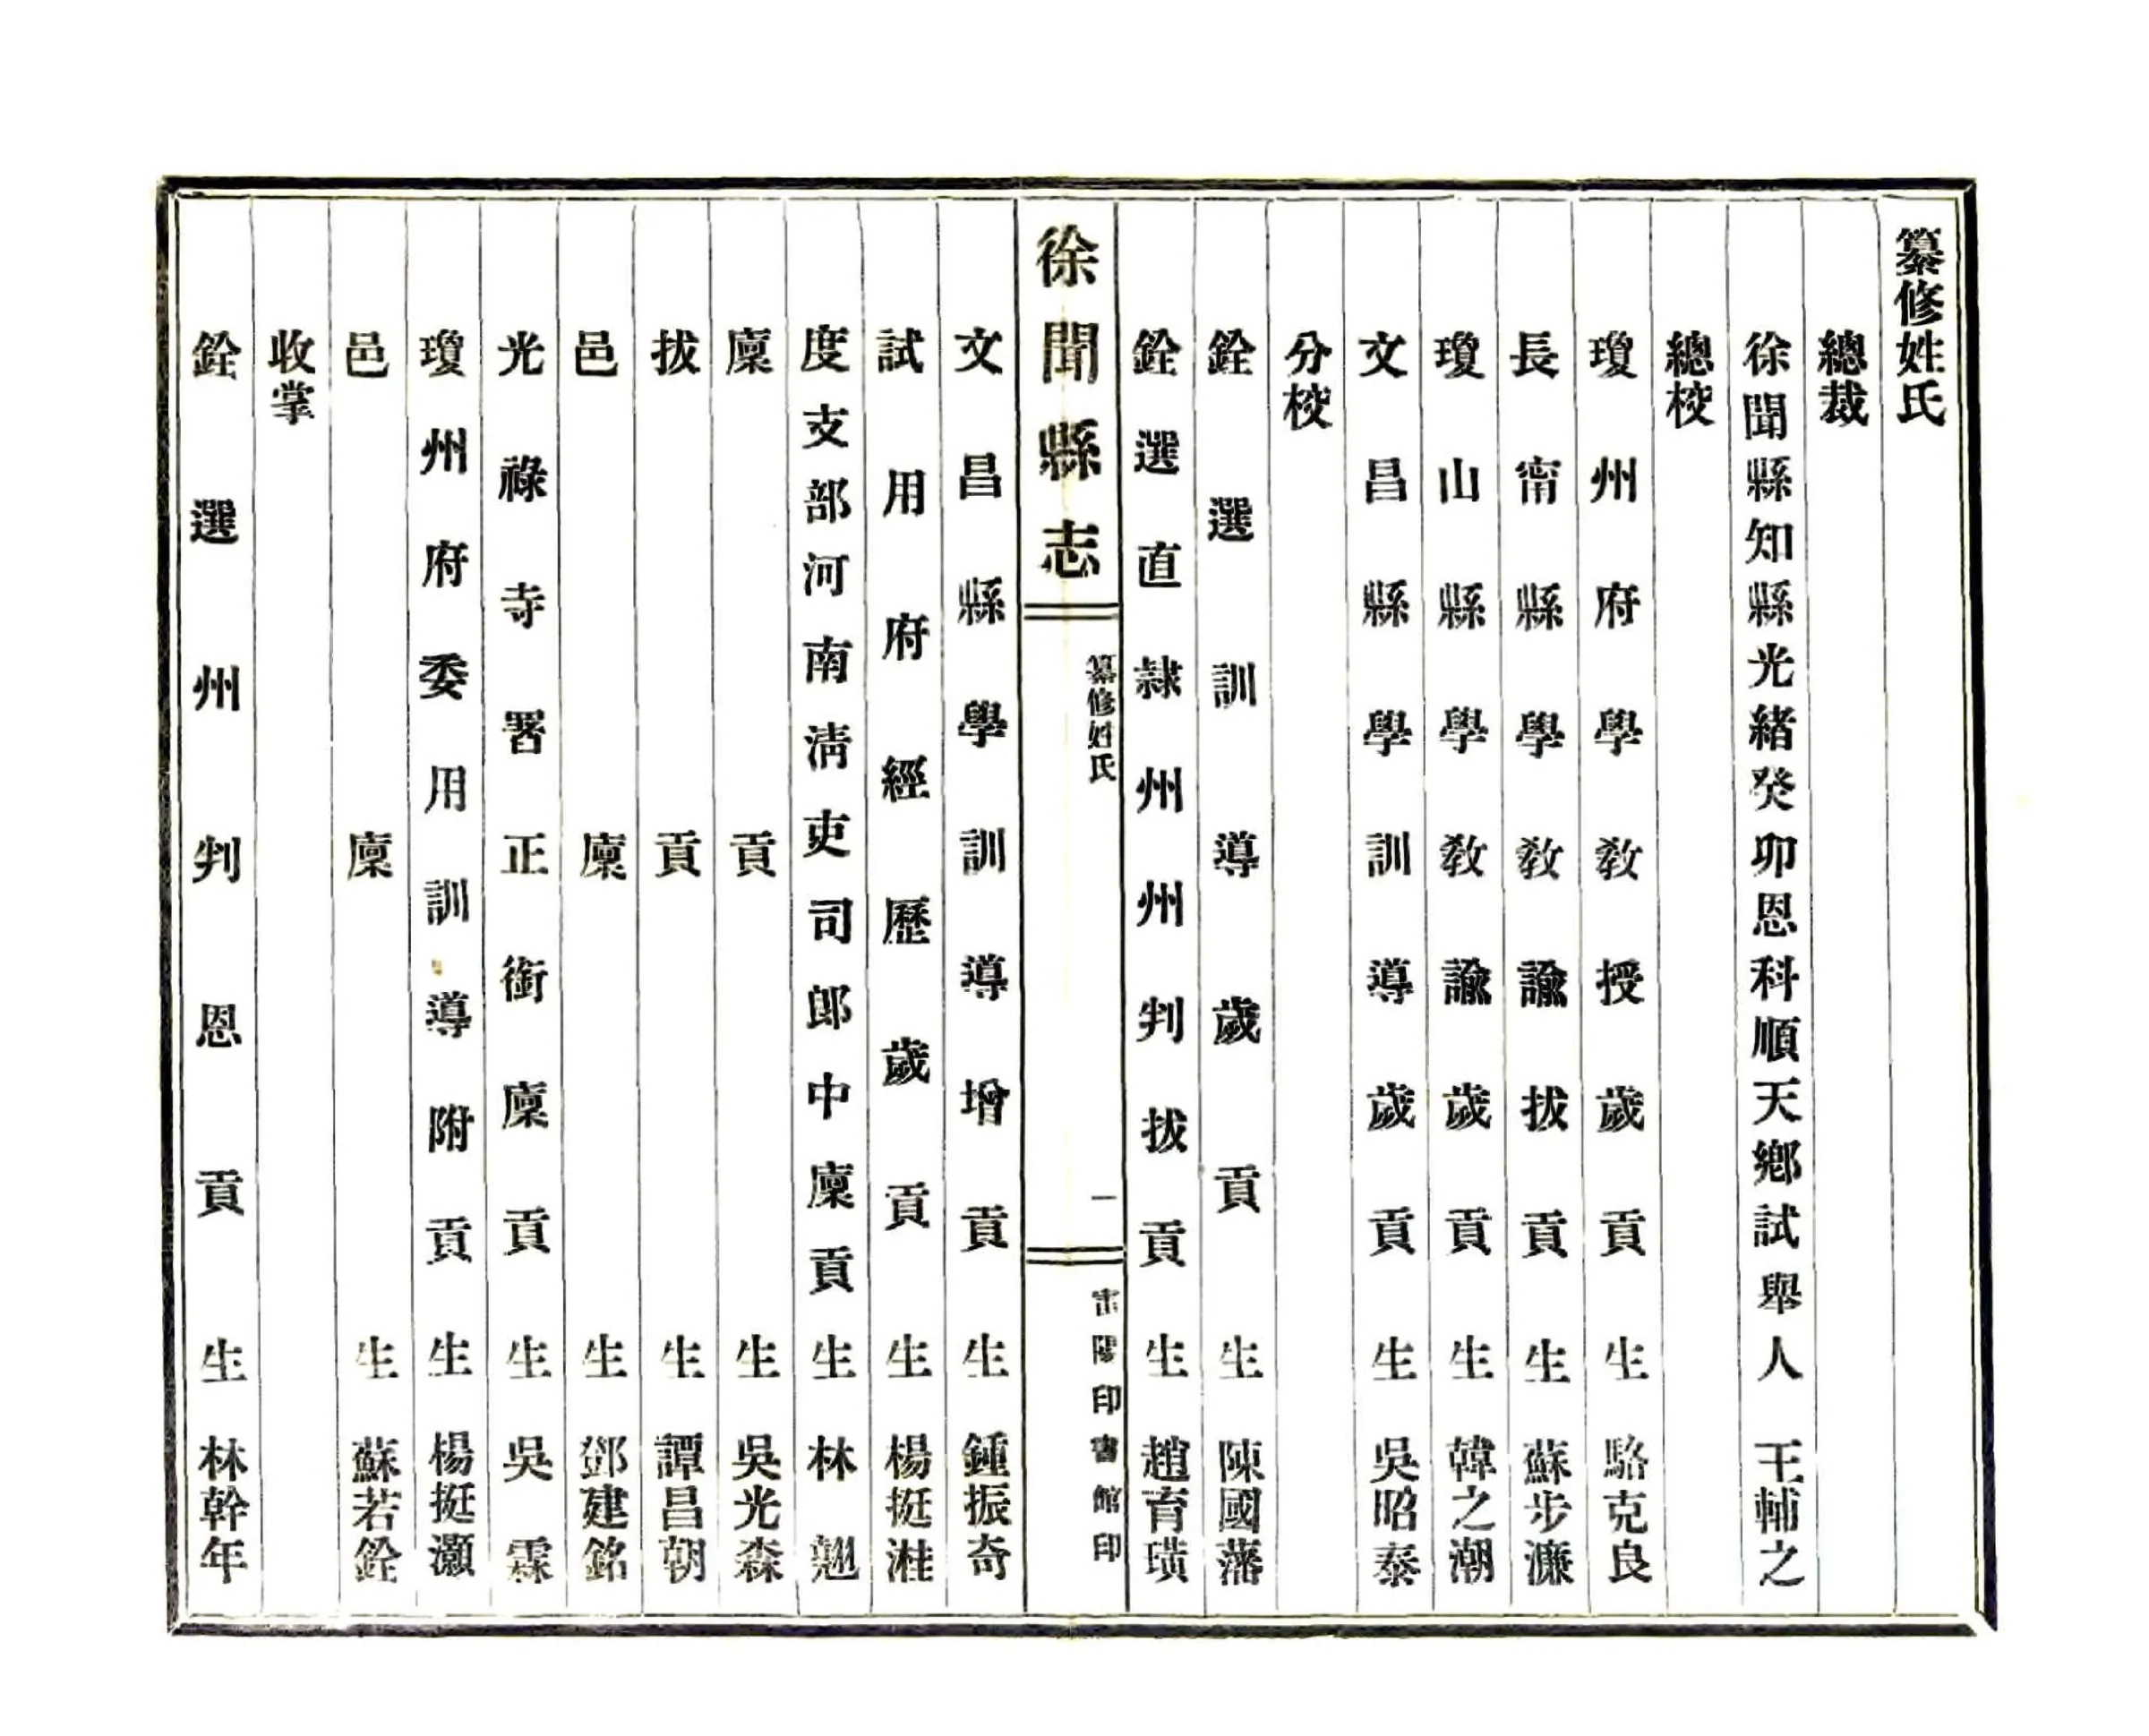 纂修姓氏
總裁
徐聞縣知縣光緒癸卯恩科順天鄉試舉人 王輔之
總校
瓊州府學教授歲貢生 駱克良
長甯縣學教諭拔貢生 蘇步濂
瓊山縣學教諭歲貢生 韓之潮
文昌縣學訓導歲貢生 吳昭泰
分校
銓選訓導歲貢生 陳國藩
銓選直隸州州判拔貢生 趙育璜
徐聞縣志
纂修姓氏
一
雷陽印書館印
文昌縣學訓導增貢生 鍾振奇
試用府經歷歲貢生 楊挺溎
度支部河南清吏司郎中廩貢生 林翹
廩貢生 吳光森
拔貢生 譚昌朝
邑廩生 鄧建銘
光祿寺署正銜廩貢生 吳霖
瓊州府委用訓導附貢生 楊挺灝
邑廩生 蘇若銓
收掌
銓選州判恩貢生 林幹年